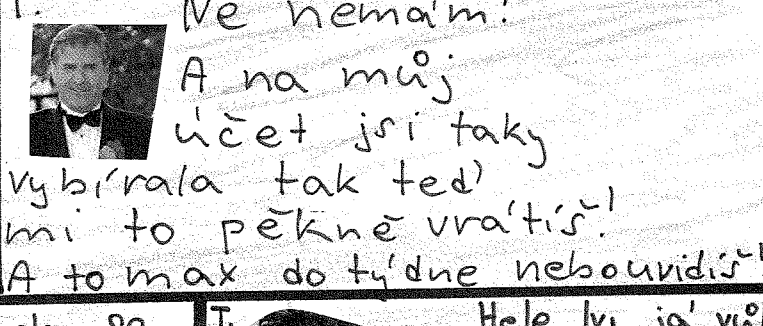 Ne nemám!
A na můj
účet jsi taky
vybírala tak teď
mi to pěkně vrátíš!
A to max do týdne nebouvidíš!
Hele